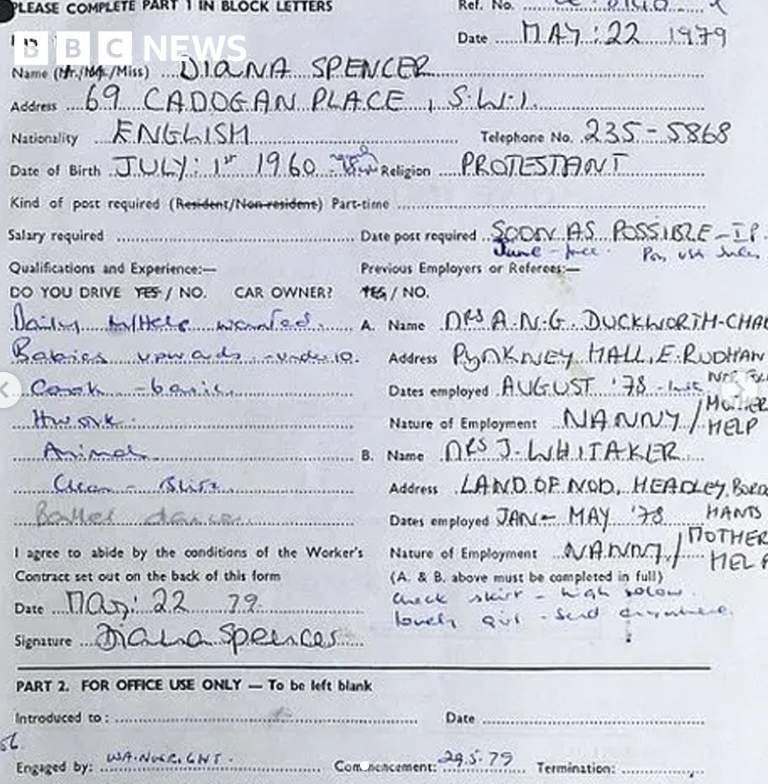 PLEASE COMPLETE PART 1 IN BLOCK LETTERS Ref. No.
BBC NEWS
Date MAY: 22 1979
Name (Mr./Mrs./Miss) DIANA SPENCER
Address 69 CADOGAN PLACE, S.W.1.
Nationality ENGLISH Telephone No. 235-5868
Date of Birth JULY: 1st 1960 Religion PROTESTANT
Kind of post required (Resident/Non-resident) Part-time
Salary required Date post required SOON AS POSSIBLE - I.P.
June - free.
Qualifications and Experience:— Previous Employers or Referees:—
DO YOU DRIVE YES / NO. CAR OWNER? YES / NO.
Daily M/Help wanted. A. Name MRS A.N.G. DUCKWORTH-CHAD
Babies upwards - under 10. Address PYNKNEY HALL, E. RUDHAM
Cook - basic Dates employed AUGUST '78 -
Hwork. Nature of Employment NANNY / MOTHER HELP
Animals B. Name MRS J. WHITAKER
Clean - Address LAND OF NOD, HEADLEY, BORD
HANTS
Ballet dance Dates employed JAN - MAY '78
I agree to abide by the conditions of the Worker's Nature of Employment NANNY / MOTHER HELP
Contract set out on the back of this form (A. & B. above must be completed in full)
check skirt - high
Date MAY: 22 79. lovely girl - send anywhere.
Signature Diana Spencer
PART 2. FOR OFFICE USE ONLY — To be left blank
Introduced to : Date
Engaged by: WAINWRIGHT. Commencement: 29.5.79 Termination: